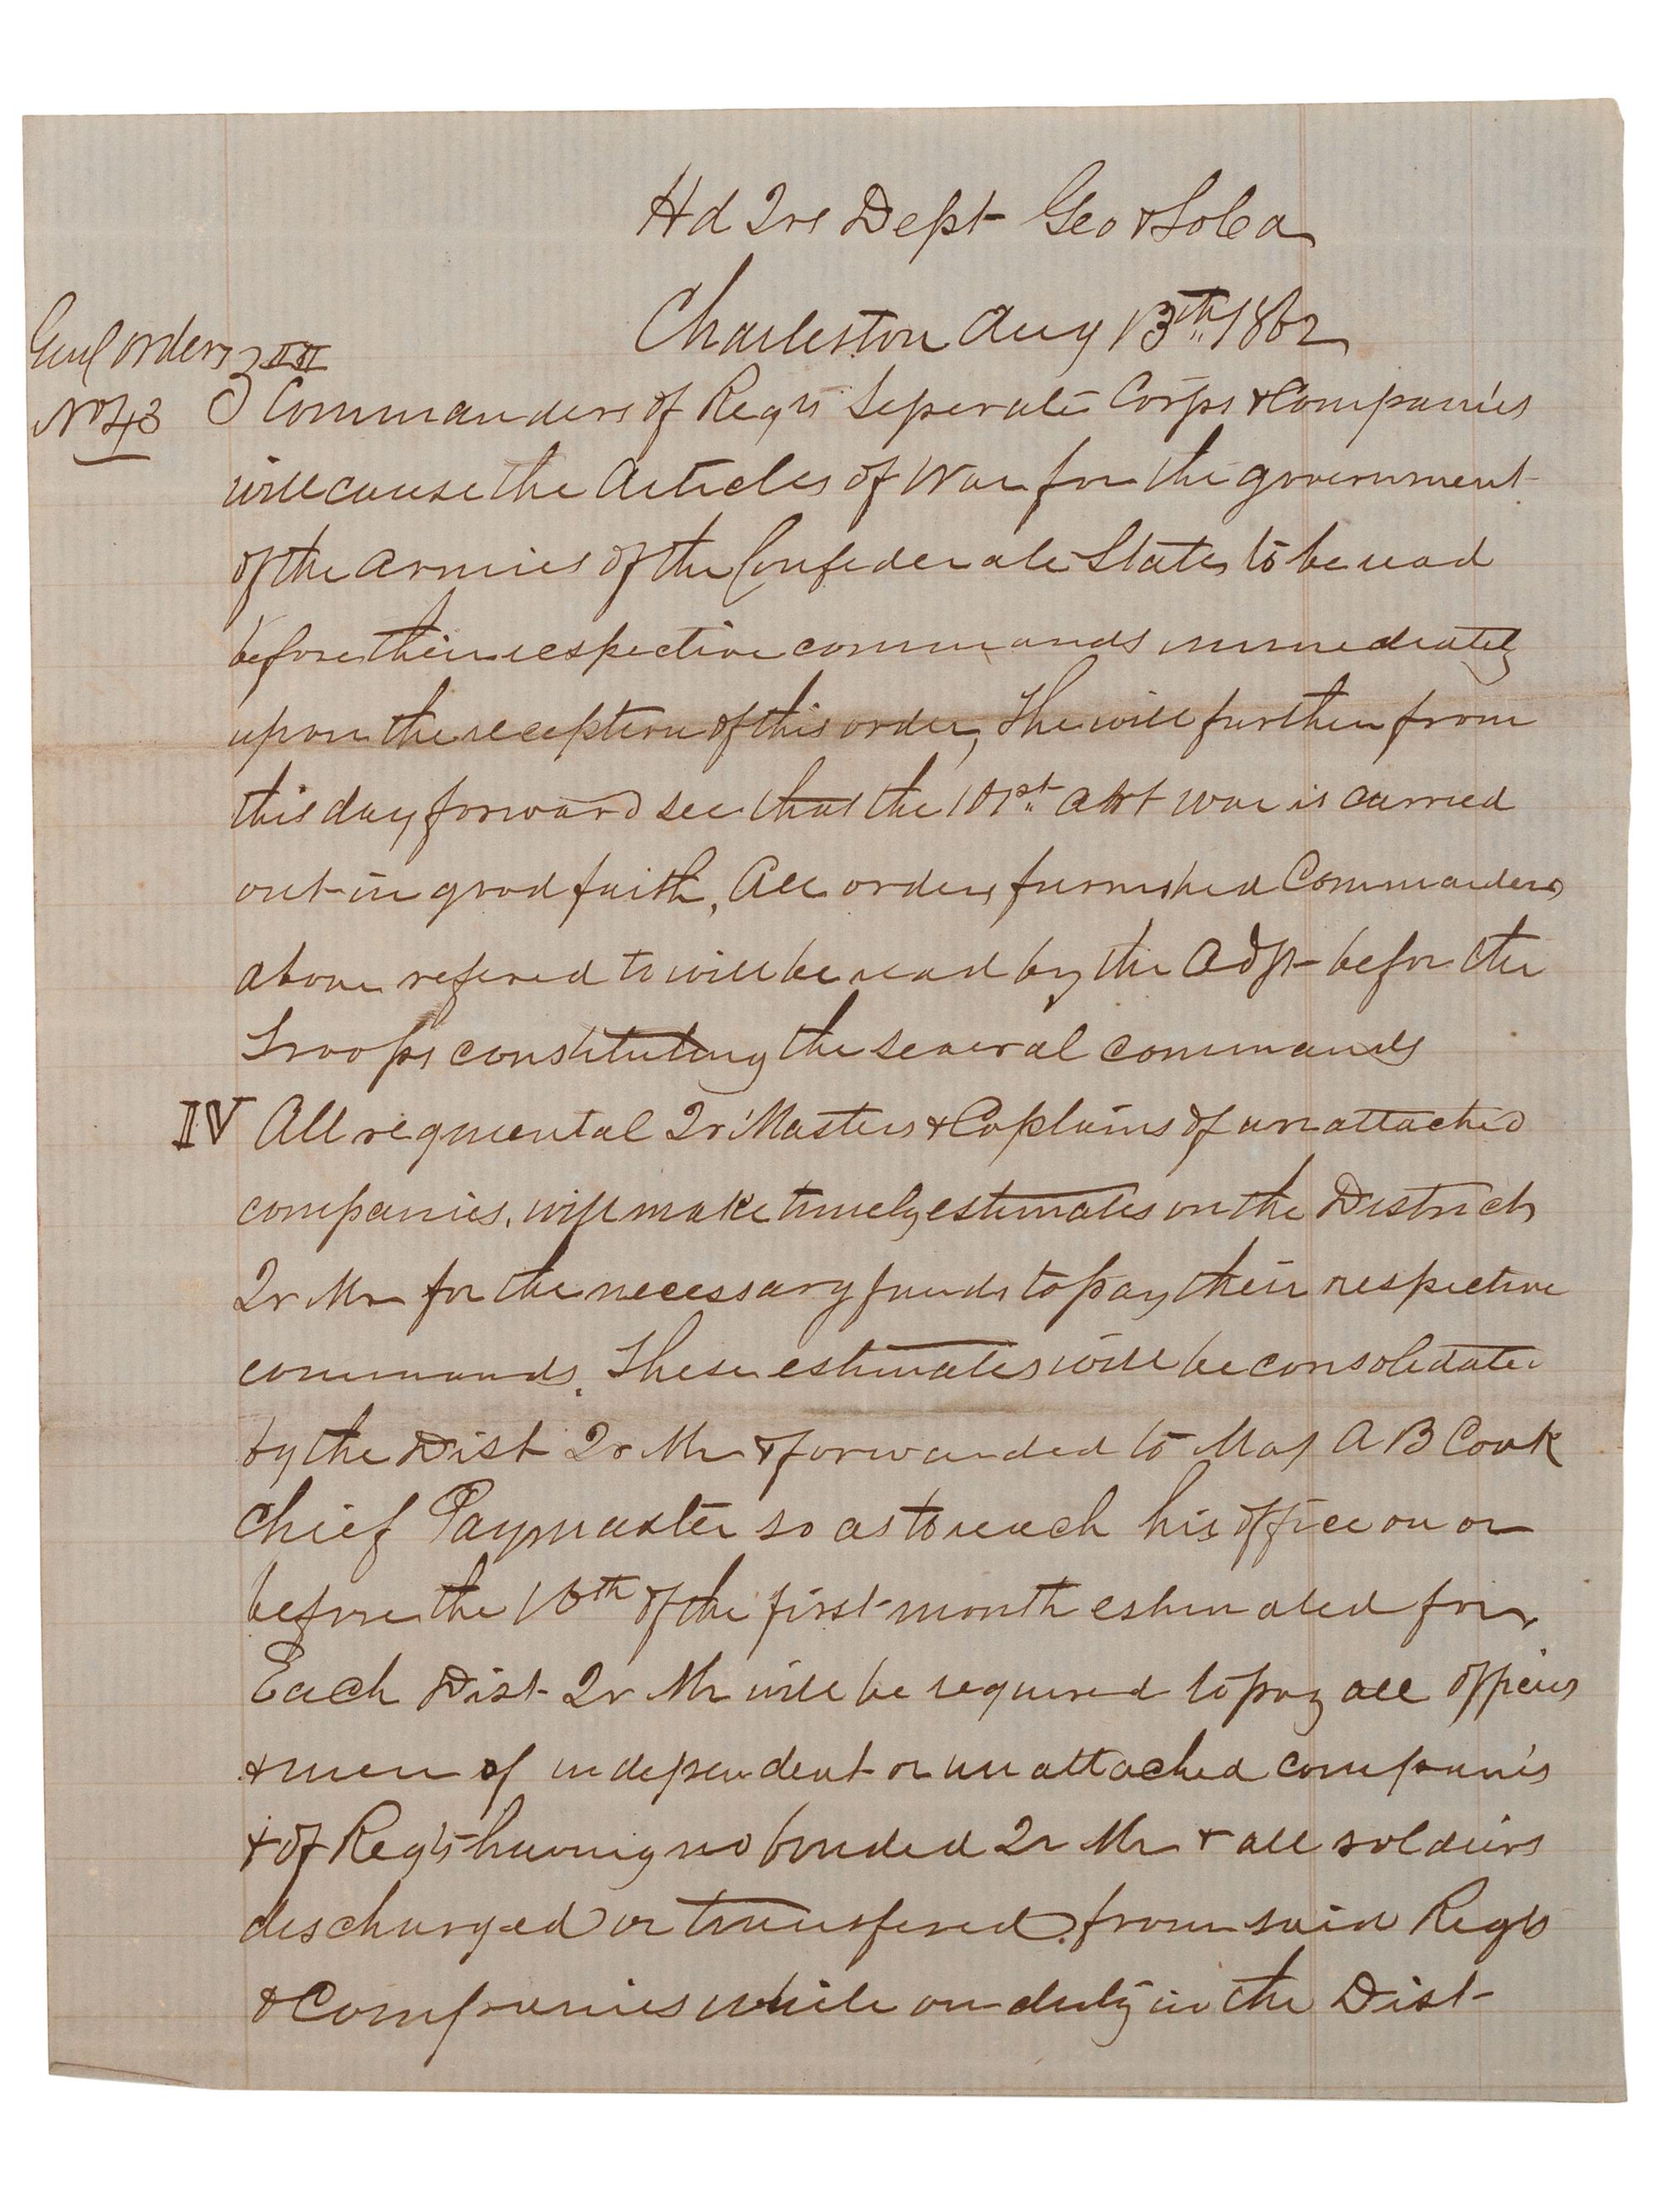 Hd Qrs Dept Geo & So Ca
Charleston Aug 13th 1862
Genl orders } III
No 43 Commanders of Regts Seperate Corps & Companies
will cause the Articles of War for the government
of the armies of the Confederate States to be read
before their respective commands immediately
upon the reception of this order, & he will further from
this day forward see that the 101st Art war is carried
out in good faith, All orders furnished Commanders
above refered to will be read by the Adjt before the
Troops constituting the several commands
IV All regmental Qr Masters & Captains of unattached
companies, will make timely estimates on the District
Qr Mr for the necessary funds to pay their respective
commands. These estimates will be consolidated
by the Dist Qr Mr & forwarded to Maj A B Cook
Chief Paymaster so as to reach his office on or
before the 10th of the first month estimated for,
Each Dist Qr Mr will be required to pay all officers
& men of independent or unattached companies
& of Regts having no bonded Qr Mr & all soldiers
discharged or transfered from said Regts
& Companies while on duty in the Dist